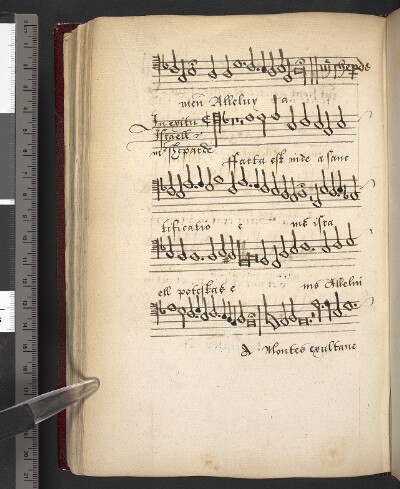 mr shepde
men Alleluy a
In exitu
Israell
mr sheparde
ffacta est inde a sanc
tificatio e ius isra
ell potestas e ius Allelui
A Montes exultane